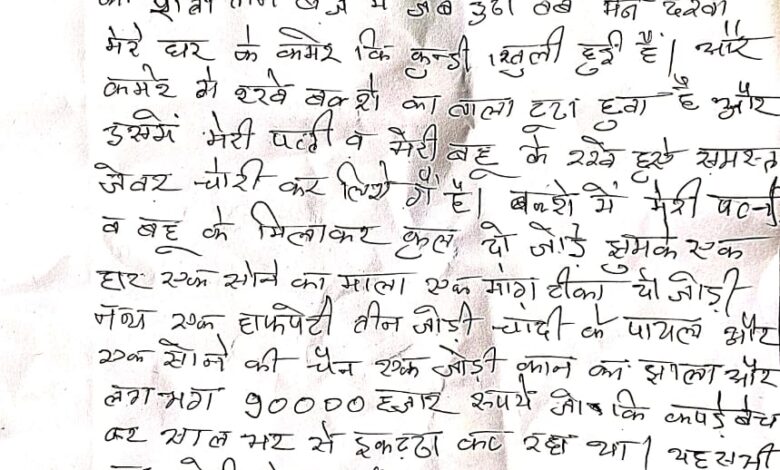 तीन बजे में जब उठा तब मैने देखा
मेरे घर के कमेरे कि कुन्डी खुली हुई है। और
कमेरे मे रखे बक्शे का ताला टूटा हुवा है और
इसमें मेरी पत्नी व मेरी बहू के रखे हुऐ समस्त
जेवर चोरी कर लिये गें है। बक्शे में मेरी पत्नी
व बहू के मिलाकर कुल दो जोड़े झुमके एक
हार एक सोने का माला एक मांग टीका दो जोड़ी
नथ एक हाफपेटी तीन जोड़ी चांदी के पायल और
एक सोने की चैन एक जोड़ी कान का झाला और
लगभग 90000 हजार रूपये जो कि कपड़े बेच
कर साल भर से इकट्ठा कर रहा था। यह सभी